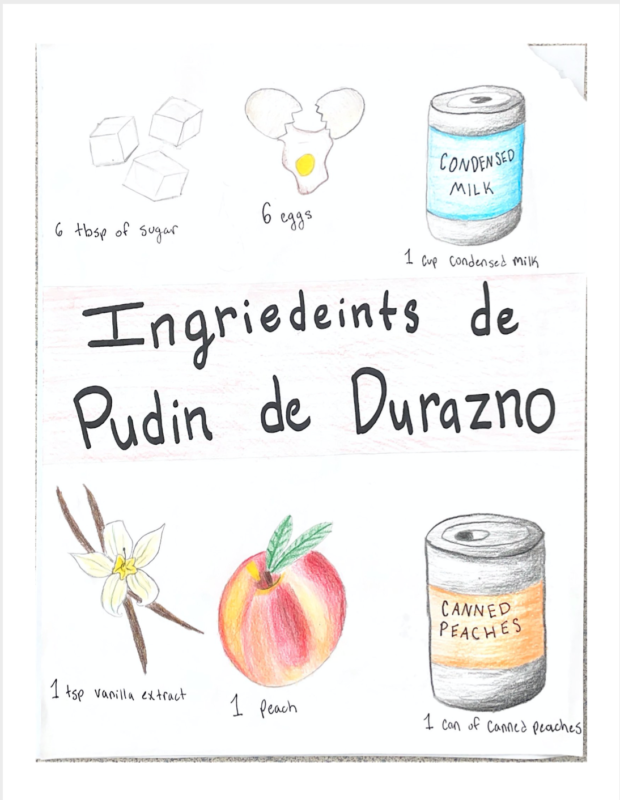 6 tbsp of sugar
6 eggs
CONDENSED
MILK
1 cup condensed milk
Ingriedeints de
Pudin de Durazno
1 tsp vanilla extract
1 Peach
CANNED
PEACHES
1 can of canned peaches